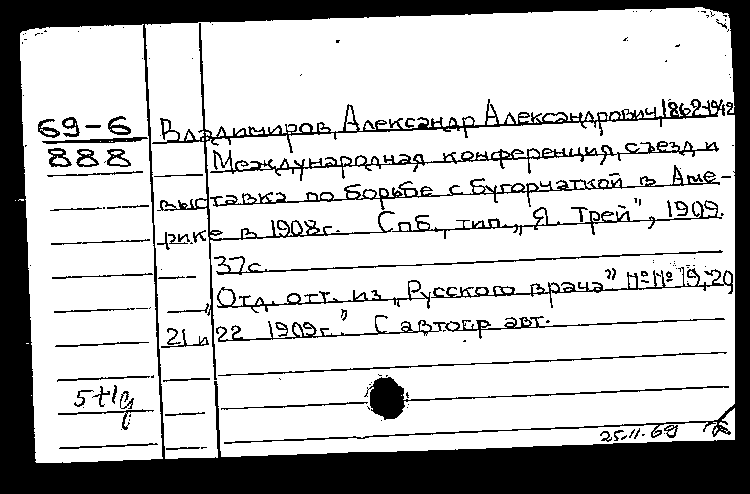 69-6 Владимиров, Александр Александрович, 1862-1942
888 Международная конференция, съезд и
выставка по борьбе с бугорчаткой в Аме-
рике в 1908г. Спб., тип. „Я. Трей", 1909.
37с.
„Отд. отт. из „Русского врача" №№ 19, 20
21 и 22 1909г." С автогр авт.
25.11.69